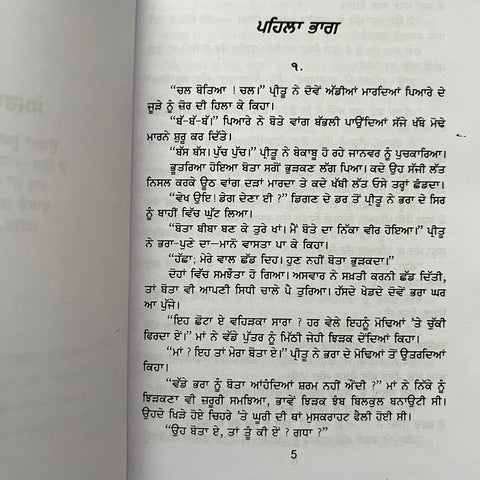 ਪਹਿਲਾ ਭਾਗ
੧.
“ਚਲ ਬੋਤਿਆ ! ਚਲ।” ਪ੍ਰੀਤੂ ਨੇ ਦੋਵੇਂ ਅੱਡੀਆਂ ਮਾਰਦਿਆਂ ਪਿਆਰੇ ਦੇ
ਜੂੜੇ ਨੂੰ ਜ਼ੋਰ ਦੀ ਹਿਲਾ ਕੇ ਕਿਹਾ।
“ਬੱ-ਬੱ-ਬੱ।” ਪਿਆਰੇ ਨੇ ਬੋਤੇ ਵਾਂਗ ਬੱਭਲੀ ਪਾਉਂਦਿਆਂ ਸੱਜੇ ਖੱਬੇ ਮੋਢੇ
ਮਾਰਨੇ ਸ਼ੁਰੂ ਕਰ ਦਿੱਤੇ।
“ਬੱਸ ਬੱਸ। ਪੁੱਚ ਪੁੱਚ।” ਪ੍ਰੀਤੂ ਨੇ ਬੇਕਾਬੂ ਹੋ ਰਹੇ ਜਾਨਵਰ ਨੂੰ ਪੁਚਕਾਰਿਆ।
ਭੂਤਰਿਆ ਹੋਇਆ ਬੋਤਾ ਸਗੋਂ ਭੁੜਕਣ ਲੱਗ ਪਿਆ। ਕਦੇ ਉਹ ਸੱਜੀ ਲੱਤ
ਨਿਸਲ ਕਰਕੇ ਊਠ ਵਾਂਗ ਦੜਾਂ ਮਾਰਦਾ ਤੇ ਕਦੇ ਖੱਬੀ ਲੱਤ ਓਸੇ ਤਰ੍ਹਾਂ ਛੰਡਦਾ।
“ਵੇਖ ਉਇ। ਡੇਗ ਦੇਣਾ ਈ ?” ਡਿਗਣ ਦੇ ਡਰ ਤੋਂ ਪ੍ਰੀਤੂ ਨੇ ਭਰਾ ਦੇ ਸਿਰ
ਨੂੰ ਬਾਹੀਂ ਵਿੱਚ ਘੁੱਟ ਲਿਆ।
“ਬੋਤਾ ਬੀਬਾ ਬਣ ਕੇ ਤੁਰੇ ਖਾਂ। ਮੈਂ ਬੋਤੇ ਦਾ ਨਿੱਕਾ ਵੀਰ ਹੋਇਆ।” ਪ੍ਰੀਤੂ
ਨੇ ਭਰਾ-ਪੁਣੇ ਦਾ—ਮਾਨੋ ਵਾਸਤਾ ਪਾ ਕੇ ਕਿਹਾ।
“ਹੱਛਾ; ਮੇਰੇ ਵਾਲ ਛੱਡ ਦਿਹ। ਹੁਣ ਨਹੀਂ ਬੋਤਾ ਭੁੜਕਦਾ।”
ਦੋਹਾਂ ਵਿੱਚ ਸਮਝੌਤਾ ਹੋ ਗਿਆ। ਅਸਵਾਰ ਨੇ ਸਖ਼ਤੀ ਕਰਨੀ ਛੱਡ ਦਿੱਤੀ,
ਤਾਂ ਬੋਤਾ ਵੀ ਆਪਣੀ ਸਿਧੀ ਚਾਲੇ ਪੈ ਤੁਰਿਆ। ਹੱਸਦੇ ਖੇਡਦੇ ਦੋਵੇਂ ਭਰਾ ਘਰ
ਆ ਪੁੱਜੇ।
“ਇਹ ਛੋਟਾ ਏ ਵਹਿੜਕਾ ਸਾਰਾ ? ਹਰ ਵੇਲੇ ਇਹਨੂੰ ਮੋਢਿਆਂ ’ਤੇ ਚੁੱਕੀ
ਫਿਰਦਾ ਏਂ।” ਮਾਂ ਨੇ ਵੱਡੇ ਪੁੱਤਰ ਨੂੰ ਮਿੱਠੀ ਜੇਹੀ ਝਿੜਕ ਦੇਂਦਿਆਂ ਕਿਹਾ।
“ਮਾਂ ? ਇਹ ਤਾਂ ਮੇਰਾ ਬੋਤਾ ਏ।” ਪ੍ਰੀਤੂ ਨੇ ਭਰਾ ਦੇ ਮੋਢਿਆਂ ਤੋਂ ਉਤਰਦਿਆਂ
ਕਿਹਾ।
“ਵੱਡੇ ਭਰਾ ਨੂੰ ਬੋਤਾ ਆਂਹਦਿਆਂ ਸ਼ਰਮ ਨਹੀਂ ਔਂਦੀ ?” ਮਾਂ ਨੇ ਨਿੱਕੇ ਨੂੰ
ਝਿੜਕਣਾ ਵੀ ਜ਼ਰੂਰੀ ਸਮਝਿਆ, ਭਾਵੇਂ ਝਿੜਕ ਝੰਬ ਬਿਲਕੁਲ ਬਨਾਉਟੀ ਸੀ।
ਉਹਦੇ ਖਿੜੇ ਹੋਏ ਚਿਹਰੇ ’ਤੇ ਘੂਰੀ ਦੀ ਥਾਂ ਮੁਸਕਰਾਹਟ ਫੈਲੀ ਹੋਈ ਸੀ।
“ਉਹ ਬੋਤਾ ਏ, ਤਾਂ ਤੂੰ ਕੀ ਏਂ ? ਗਧਾ ?”
5